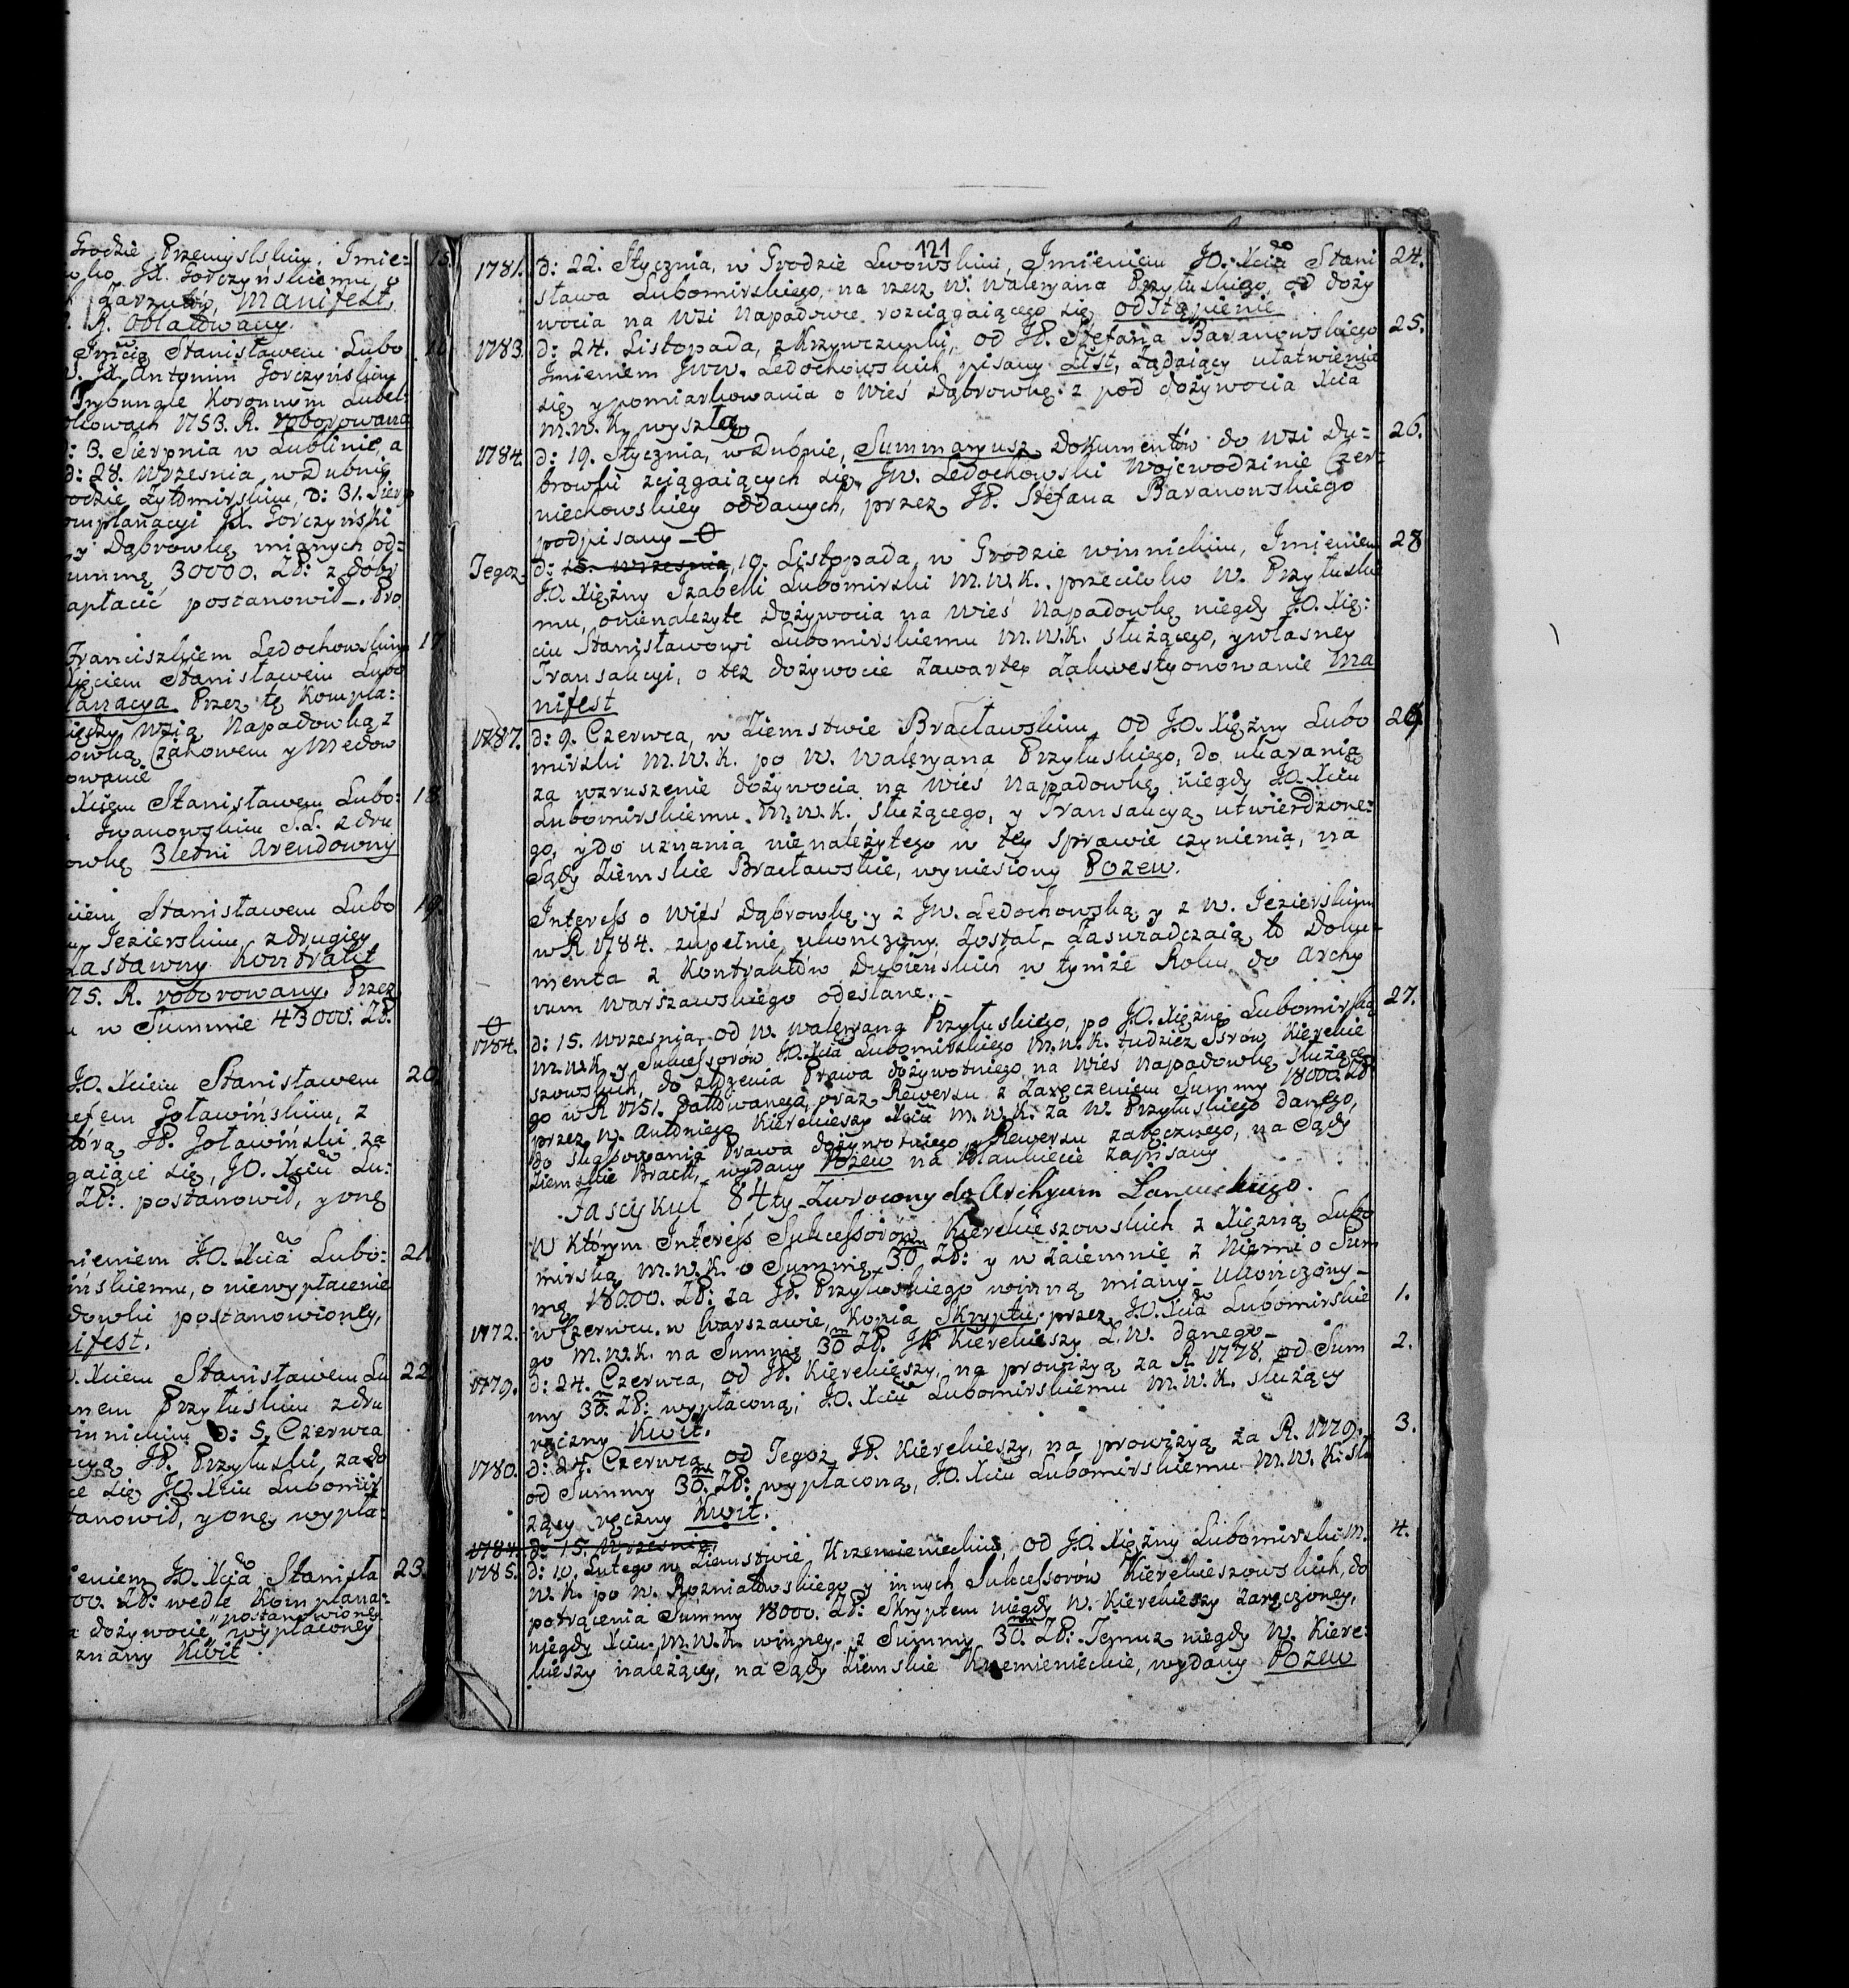 Grodzie Przemyslskim, Imie=
JX. Gorczyńskiemu, o
zarzutów, Manifest,
R. Oblatowany.
15.
Xmcią Stanisławem Lubo
JX. Antonim Gorczyńskim
Trybunale Koronnym Lubel:
1753. R. roborowana
d: 3. Sierpnia w Lublinie, a
d: 28. Wrzesnia w Dubnie
Grodzie Żytomirskim, d: 31. Sierp
omplanacyi JX. Gorczyński
Dąbrowkę mianych od=
summę 30000. Zł: z dobr
apłacić postanowił_. Pro
Franciszkiem Ledochowskim
17
Xięciem Stanisławem Lubo
lanacya. Przez tę Kompla:
między wsią Napadowką z
owką Czahowem y Medow
owanie
Xcięm Stanisławem Lubo:
18.
Iwanowskim S.L. z dru
owkę 3letni Arendowny
ciem Stanisławem Lubo
19.
Jezierskim, z drugiey
Zastawny Kontrakt
75. R. roborowany. Przez
w Summie 43000. Zł.
J.O. Xciem Stanisławem
20.
zefem Goławińskim, z
tórą JP. Goławiński za
gaiące się, JO. Xciu Lu:
Zł: postanowił, y onę
mieniem J.O. Xcia Lubo:
21.
ińskiemu, o niewypłacenie
dowki postanowioney,
ifest.
Xciem Stanisławem Lu
22
anem Przyłuskim z dru
innickim d: 5. Czerwca
cyą JP. Przyłuski, za do
ce się J.O. Xciu Lubomir
tanowił, y onę wypła:
ieniem J.O. Xcia Stanisła
23.
00. Zł: wedle Komplana:
postanowioney
a dożywocie wypłaconey
znany Kwit
121
1781. d: 22. Stycznia, w Grodzie Lwowskim, Imieniem J.O. Xcia Stani
24.
sława Lubomirskiego, na rzecz W. Waleryana Przyłuskiego, od doży
wocia na Wsi Napadowce rozciągaiącego się odstąpienie
1783. d: 24. Listopada, z Krzywczunki, od JP. Stefana Baranowskiego
25.
Imieniem JWW. Ledochowskich pisany List, żądaiący ułatwienia
się y pomiarkowania o Wieś Dąbrowkę z pod dożywocia Xcia
M.W.K. wyszłą
1784. d: 19. Stycznia, w Dubnie, Summaryusz Dokumentów do Wsi Dą=
26.
browki sciągaiących się, JW. Ledochowski Woiewodzinie Czer:
niechowskiey oddanych, przez JP. Stefana Baranowskiego
podpisany
Tegoż. d: 15. Wrzesnia, 10. Listopada, w Grodzie Winnickim, Imieniem
28
J.O. Xiężny Izabelli Lubomirski M.W.K. przeciwko W. Przyłuskie
mu, o nienależyte dożywocia na Wieś Napadowkę niegdy J.O. Xię:
ciu Stanisławowi Lubomirskiemu M.W.K. służącego, y własney
Transakcyi, o też dożywocie zawartey zakwestyonowanie Ma
nifest
1787. d: 9. Czerwca, w Ziemstwie Bracławskim, od J.O. Xiężny Lubo
29
mirski M.W.K. po W. Waleryana Przyłuskiego, do ukarania
za wzruszenie dożywocia na Wieś Napadowkę niegdy J.O. Xciu
Lubomirskiemu M.W.K. służącego, y Transakcyą utwierdzone:
go, y do uznania nienależytego w tey sprawie czynienia, na
Sądy Ziemskie Bracławskie, wyniesiony Pozew.
Interess o Wieś Dąbrowkę y z JW. Ledochowską y z W. Jezierskim
w R. 1784. zupełnie ukonczony został_ zaswiadczaią to Doku=
menta z Kontraktów Dubieńskich w tymże Roku do Archy
vum Warszawskiego odesłane._
1784. d: 15. Wrzesnia, od W. Waleryana Przyłuskiego, po J.O. Xiężnę Lubomirską
27.
M.W.K. y Sukcessorów J.O. Xcia Lubomirskiego M.W.K. tudzież Ssrów Kierekie
szowskich, do złożenia Prawa dożywotniego na Wieś Napadowkę służące
go w R. 1751. datowanego, oraz Rewersu z zaręczeniem Summy 18000. Zł
przez W. Antoniego Kierekieszy Xciu M.W.K. za W. Przyłuskiego danego,
do skassowania Prawa dożywotniego y Rewersu zaręcznego, na Sądy
Ziemskie Bracł, wydany Pozew na Blankiecie zapisany
Fascykuł 84ty_Zwrocony do Archyum Lancuckiego.
W którym Interess Sukcessorów Kierekieszowskich z Xiężną Lubo
mirską M.W.K. o Summę 30m Zł: y wzaiemnie z Niemi o Sum
mę 18000. Zł: za JP. Przyłuskiego winną miany_ Ukończony_
1772. w Czerwcu w Warszawie, Kopia Skryptu, przez J.O. Xcia Lubomirskie
1.
go M.W.K. na Summę 30m Zł. JP. Kierekieszy Ł.W. danego_
1779. d: 24. Czerwca, od JP. Kierekieszy, na prowizyą za R. 1778. od Sum
2.
my 30m. Zł: wypłaconą, J.O. Xciu Lubomirskiemu M.W.K. służący
ręczny Kwit.
1780. d: 24. Czerwca, od Tegoż JP. Kierekieszy, na prowizyą za R. 1779.
3.
od Summy 30m. Zł: wypłaconą, J.O. Xciu Lubomirskiemu M.W.K. słu
żący ręczny Kwit.
1784. d: 15. Wrzesnia,
1785. d: 10. Lutego w Ziemstwie Krzemienieckim, od J.O. Xiężny Lubomirski M.
4.
W.K. po W. Rozniatowskiego y innych Sukcessorów Kierekieszowskich, do
potrącenia Summy 18000. Zł: Skryptem niegdy W. Kierekieszy zaręczoney,
niegdy Xciu M.W.K. winney, z Summy 30m. Zł: Temuż niegdy W. Kiere:
kieszy należącey, na Sądy Ziemskie Krzemienieckie, wydany Pozew